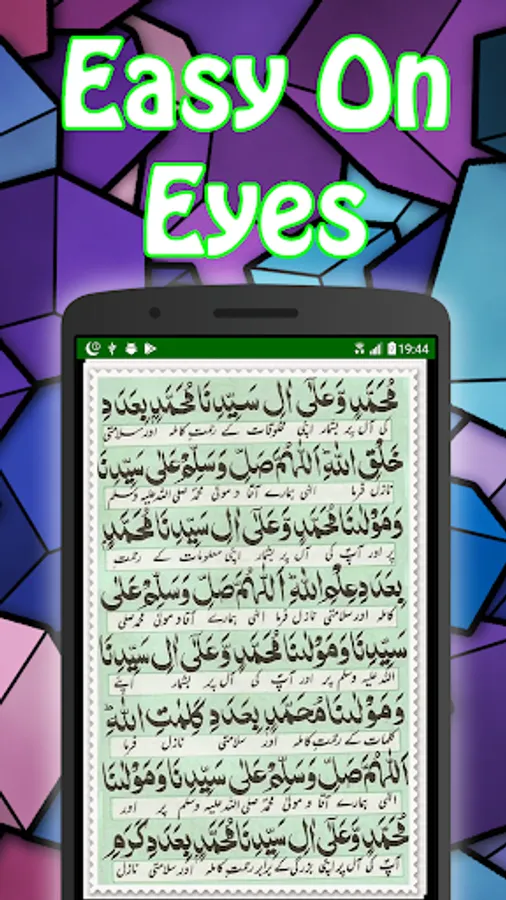 Easy On
Eyes
19:44
مُحَمَّدٍ وَّعَلٰى اٰلِ سَيِّدِنَا مُحَمَّدٍ بِعَدَدِ
کی آل پر بشمار اپنی مخلوقات کے رحمت کاملہ اور سلامتی
خَلْقِ اللّٰهِ اَللّٰهُمَّ صَلِّ وَسَلِّمْ عَلٰى سَيِّدِنَا
نازل فرما الٰہی ہمارے آقا و مولیٰ محمد صلی اللہ علیہ وسلم
وَمَوْلٰنَا مُحَمَّدٍ وَّعَلٰى اٰلِ سَيِّدِنَا مُحَمَّدٍ
پر اور آپ کی آل پر بشمار اپنی معلومات کے رحمت
بِعَدَدِ عِلْمِ اللّٰهِ اَللّٰهُمَّ صَلِّ وَسَلِّمْ عَلٰى
کاملہ اور سلامتی نازل فرما الٰہی ہمارے آقا و مولیٰ محمد صلی
سَيِّدِنَا وَمَوْلٰنَا مُحَمَّدٍ وَّعَلٰى اٰلِ سَيِّدِنَا
اللہ علیہ وسلم پر اور آپ کی آل پر بشمار اپنے
وَمَوْلٰنَا مُحَمَّدٍ بِعَدَدِ كَلِمٰتِ اللّٰهِ
کلمات کے رحمت کاملہ اور سلامتی نازل فرما
اَللّٰهُمَّ صَلِّ وَسَلِّمْ عَلٰى سَيِّدِنَا وَمَوْلٰنَا
الٰہی ہمارے آقا و مولیٰ محمد صلی اللہ علیہ وسلم پر اور
مُحَمَّدٍ وَّعَلٰى اٰلِ سَيِّدِنَا مُحَمَّدٍ بِعَدَدِ كَرَمِ
آپ کی آل پر اپنی بزرگی کے برابر رحمت کاملہ اور سلامتی نازل